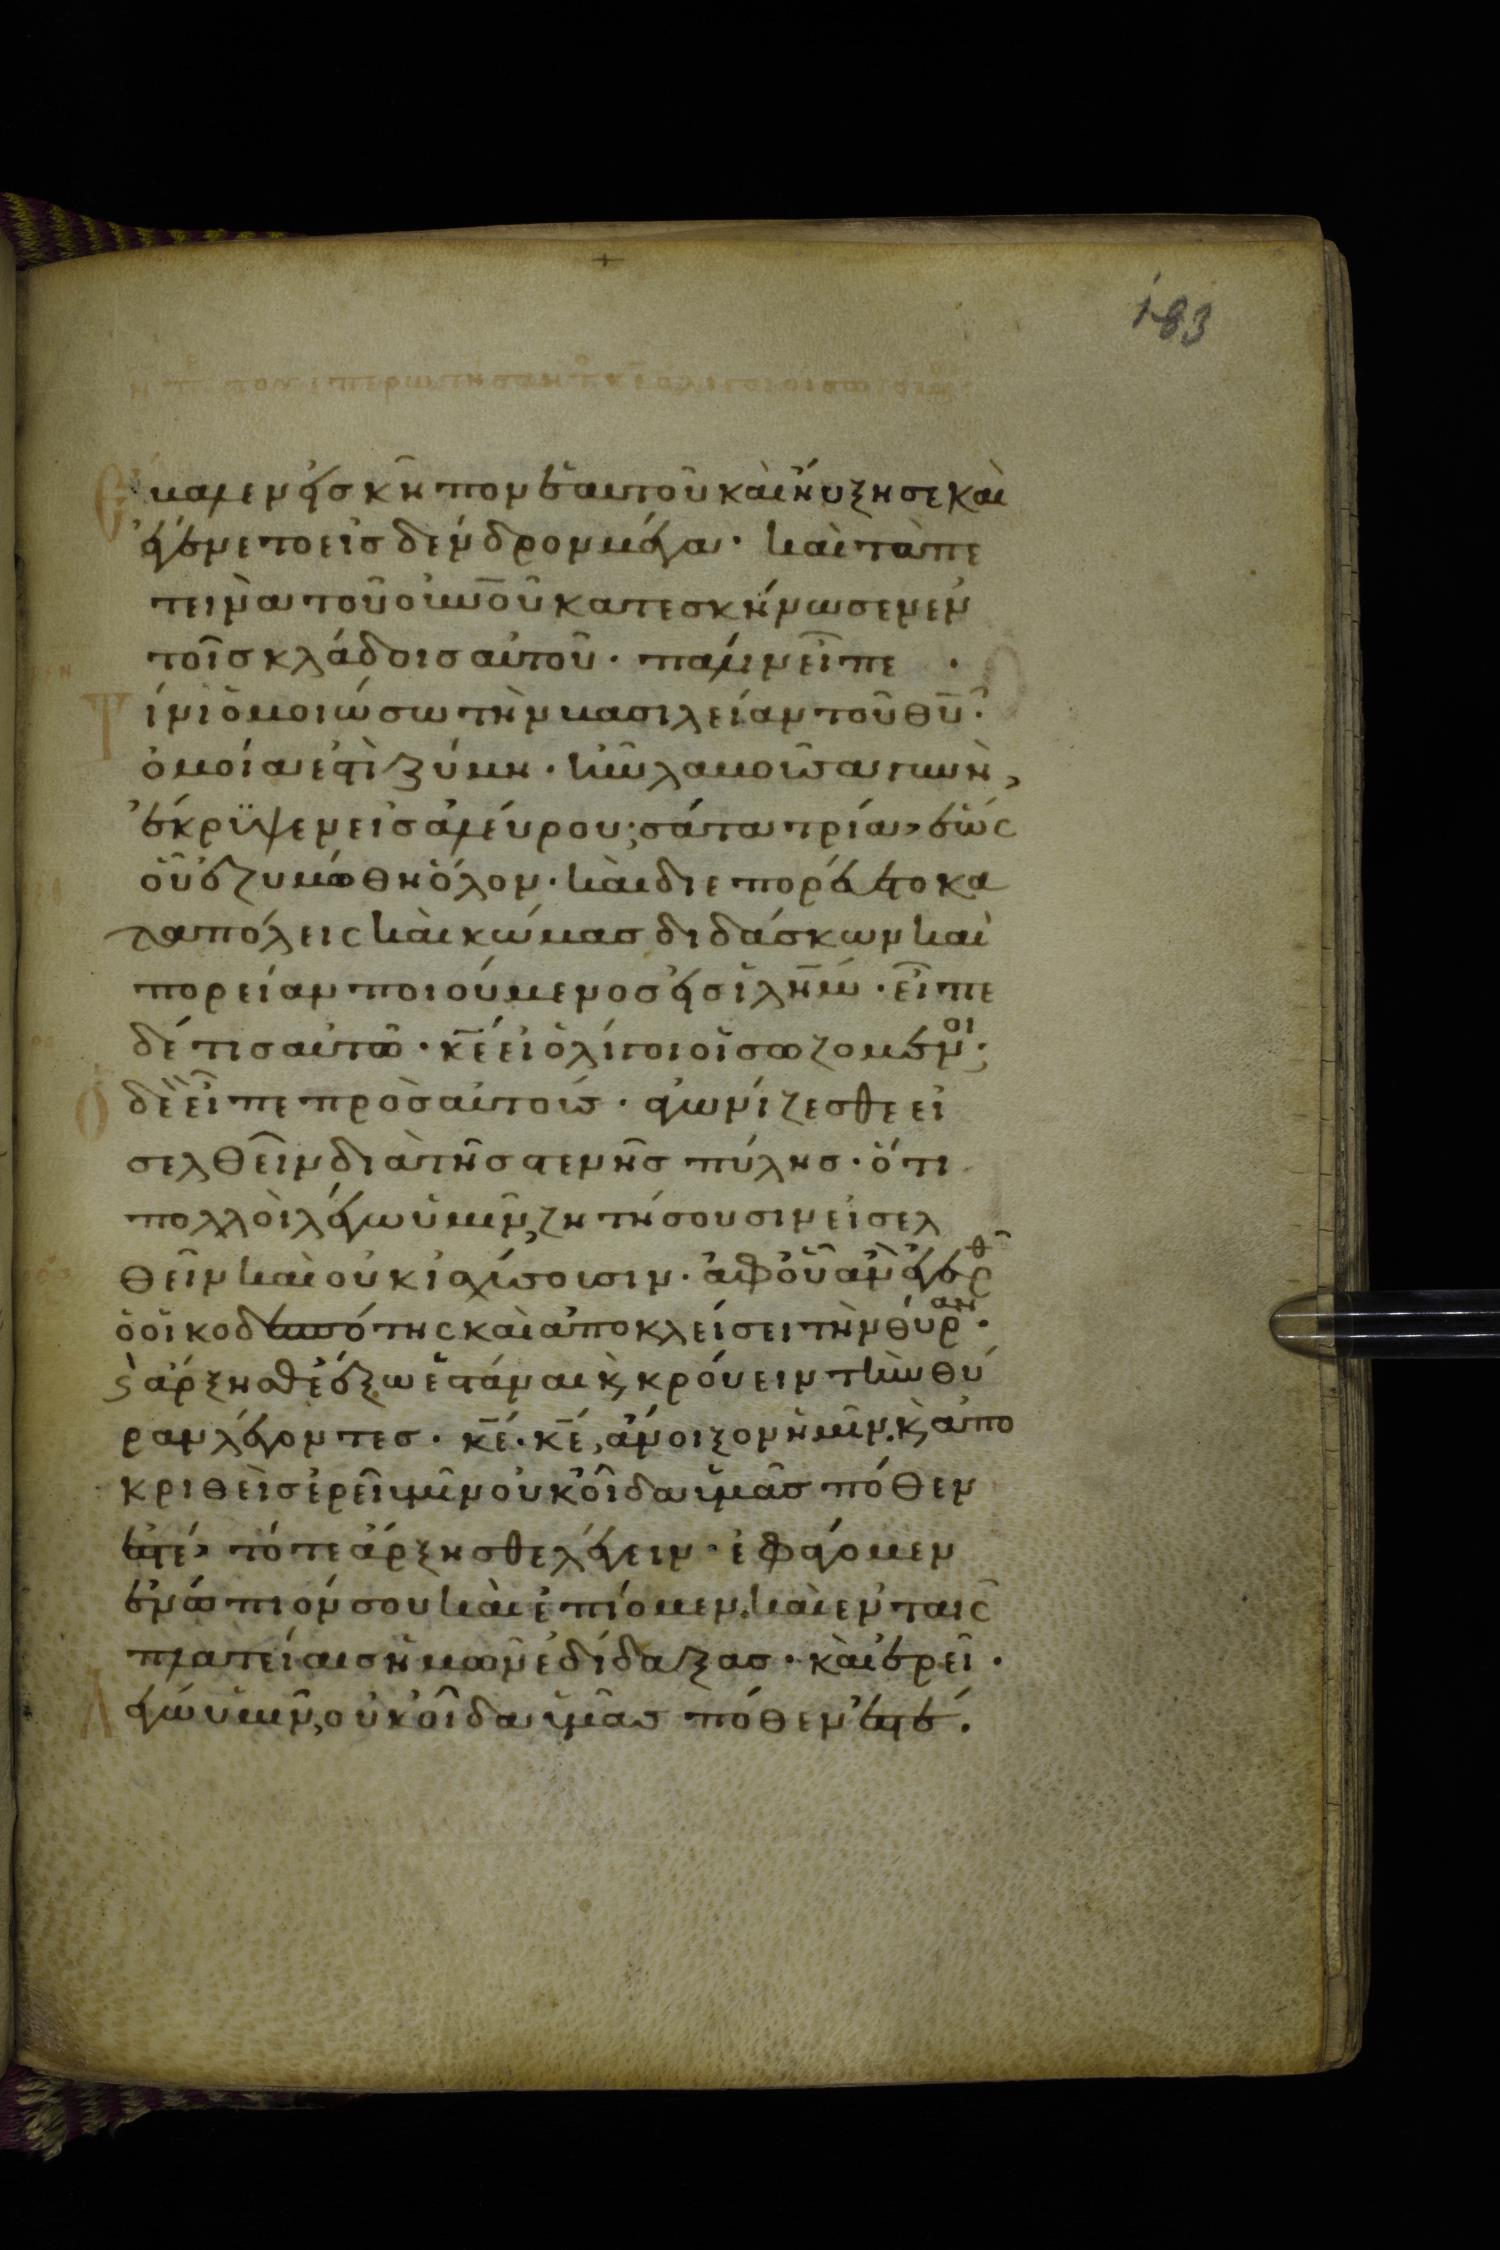 183
Ἔβαλεν εἰς κῆπον ἑαυτοῦ καὶ ηὔξησε καὶ
ἐγένετο εἰς δένδρον μέγα· καὶ τὰ πε
τεινὰ τοῦ οὐνοῦ κατεσκήνωσεν ἐν
τοῖς κλάδοις αὐτοῦ· πάλιν εἶπε·
Τίνι ὁμοιώσω τὴν βασιλείαν τοῦ θῦ·
ὁμοία ἐστὶ ζύμη· ἣν λαβοῦσα γυνὴ,
ἐνέκρυψεν εἰς ἀλεύρου σάτα τρία, ἕως
οὗ ἐζυμώθη ὅλον· καὶ διεπορεύετο κα
τὰ πόλεις καὶ κώμας διδάσκων καὶ
πορείαν ποιούμενος εἰς ἱλῆμ· εἶπε
δέ τις αὐτῷ· κε εἰ ὀλίγοι οἱ σωζόμενοι·
Ὁ δὲ εἶπε πρὸς αὐτούς· ἀγωνίζεσθε εἰ
σελθεῖν διὰ τῆς στενῆς πύλης· ὅτι
πολλοὶ λέγω ὑμῖν, ζητήσουσιν εἰσελ
θεῖν καὶ οὐκ ἰσχύσουσιν· ἀφ οὗ ἂν ἐγερθῇ
ὁ οἰκοδεσπότης καὶ ἀποκλείσει τὴν θύραν·
ϛ ἄρξησθε ἔξω ἑστάναι κ κρούειν τὴν θύ
ραν λέγοντες· κε· κε, ἄνοιξον ἡμῖν. κ ἀπο
κριθεὶς ἐρεῖ ὑμῖν οὐκ οἶδα ὑμᾶς πόθεν
ἐστέ, τότε ἄρξησθε λέγειν· ἐφάγομεν
ἐνώπιόν σου καὶ ἐπίομεν. καὶ ἐν ταῖς
πλατείαις ἡμῶν ἐδίδαξας· καὶ ἐρεῖ·
Λέγω ὑμῖν, οὐκ οἶδα ὑμᾶς πόθεν ἐστέ.